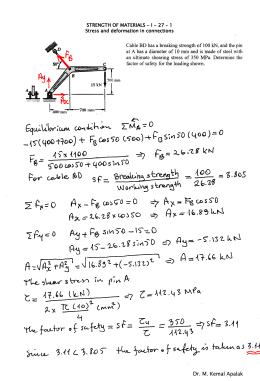 STRENGTH OF MATERIALS – I – 27 – 1
Stress and deformation in connections
Cable BD has a breaking strength of 100 kN, and the pin
at A has a diameter of 10 mm and is made of steel with
an ultimate shearing stress of 350 MPa. Determine the
factor of safety for the loading shown.
D
FB
B
50°
Ay
15 kN
A
Ax
Equilibrium condition ΣMA=0
-15(400+700) + FB cos50 (500) + FB sin50 (400) = 0
FB = 15×1100 / 500cos50+400sin50 ⇒ FB = 26.28 kN
For cable BD SF = Breaking strength / Working strength = 100 / 26.28 = 3.805
ΣFx=0 Ax - FB cos50 = 0 ⇒ Ax = FB cos50
Ax = 26.28×cos50 ⇒ Ax = 16.89 kN
ΣFy=0 Ay + FB sin50 - 15 = 0
Ay = 15 - 26.28 sin50 ⇒ Ay = -5.132 kN
A = √Ax²+Ay² = √16.89²+(-5.132)² ⇒ A = 17.66 kN
The shear stress in pin A
τ = 17.66 (kN) / 2 × π(10)²/4 (mm²) ⇒ τ = 112.43 MPa
The factor of safety = SF = τu / τ = 350 / 112.43 ⇒ SF = 3.11
Since 3.11 < 3.805 the factor of safety is taken as 3.11
Dr. M. Kemal Apalak